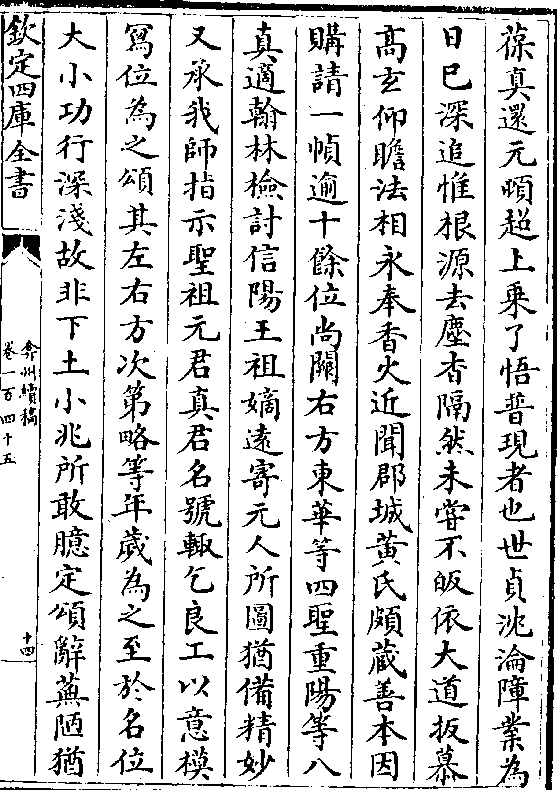 葆真還元頓超上乗了悟普現者也世貞沈淪障業為
日已深追惟根源去塵杳隔然未嘗不皈依大道扳慕
髙𤣥仰瞻法相永奉香火近聞郡城黄氏頗蔵善本因
購請一幀逾十餘位尚闕右方東華等四聖重陽等八
真適翰林檢討信陽王祖嫡逺寄元人所圖猶備精妙
又承我師指示聖祖元君真君名號輙乞良工以意模
寫位為之頌其左右方次第略等年歳為之至於名位
大小功行深淺故非下土小兆所敢臆定頌辭蕪陋猶
欽定四庫全書
弇州續稿
卷一百四十五
十四